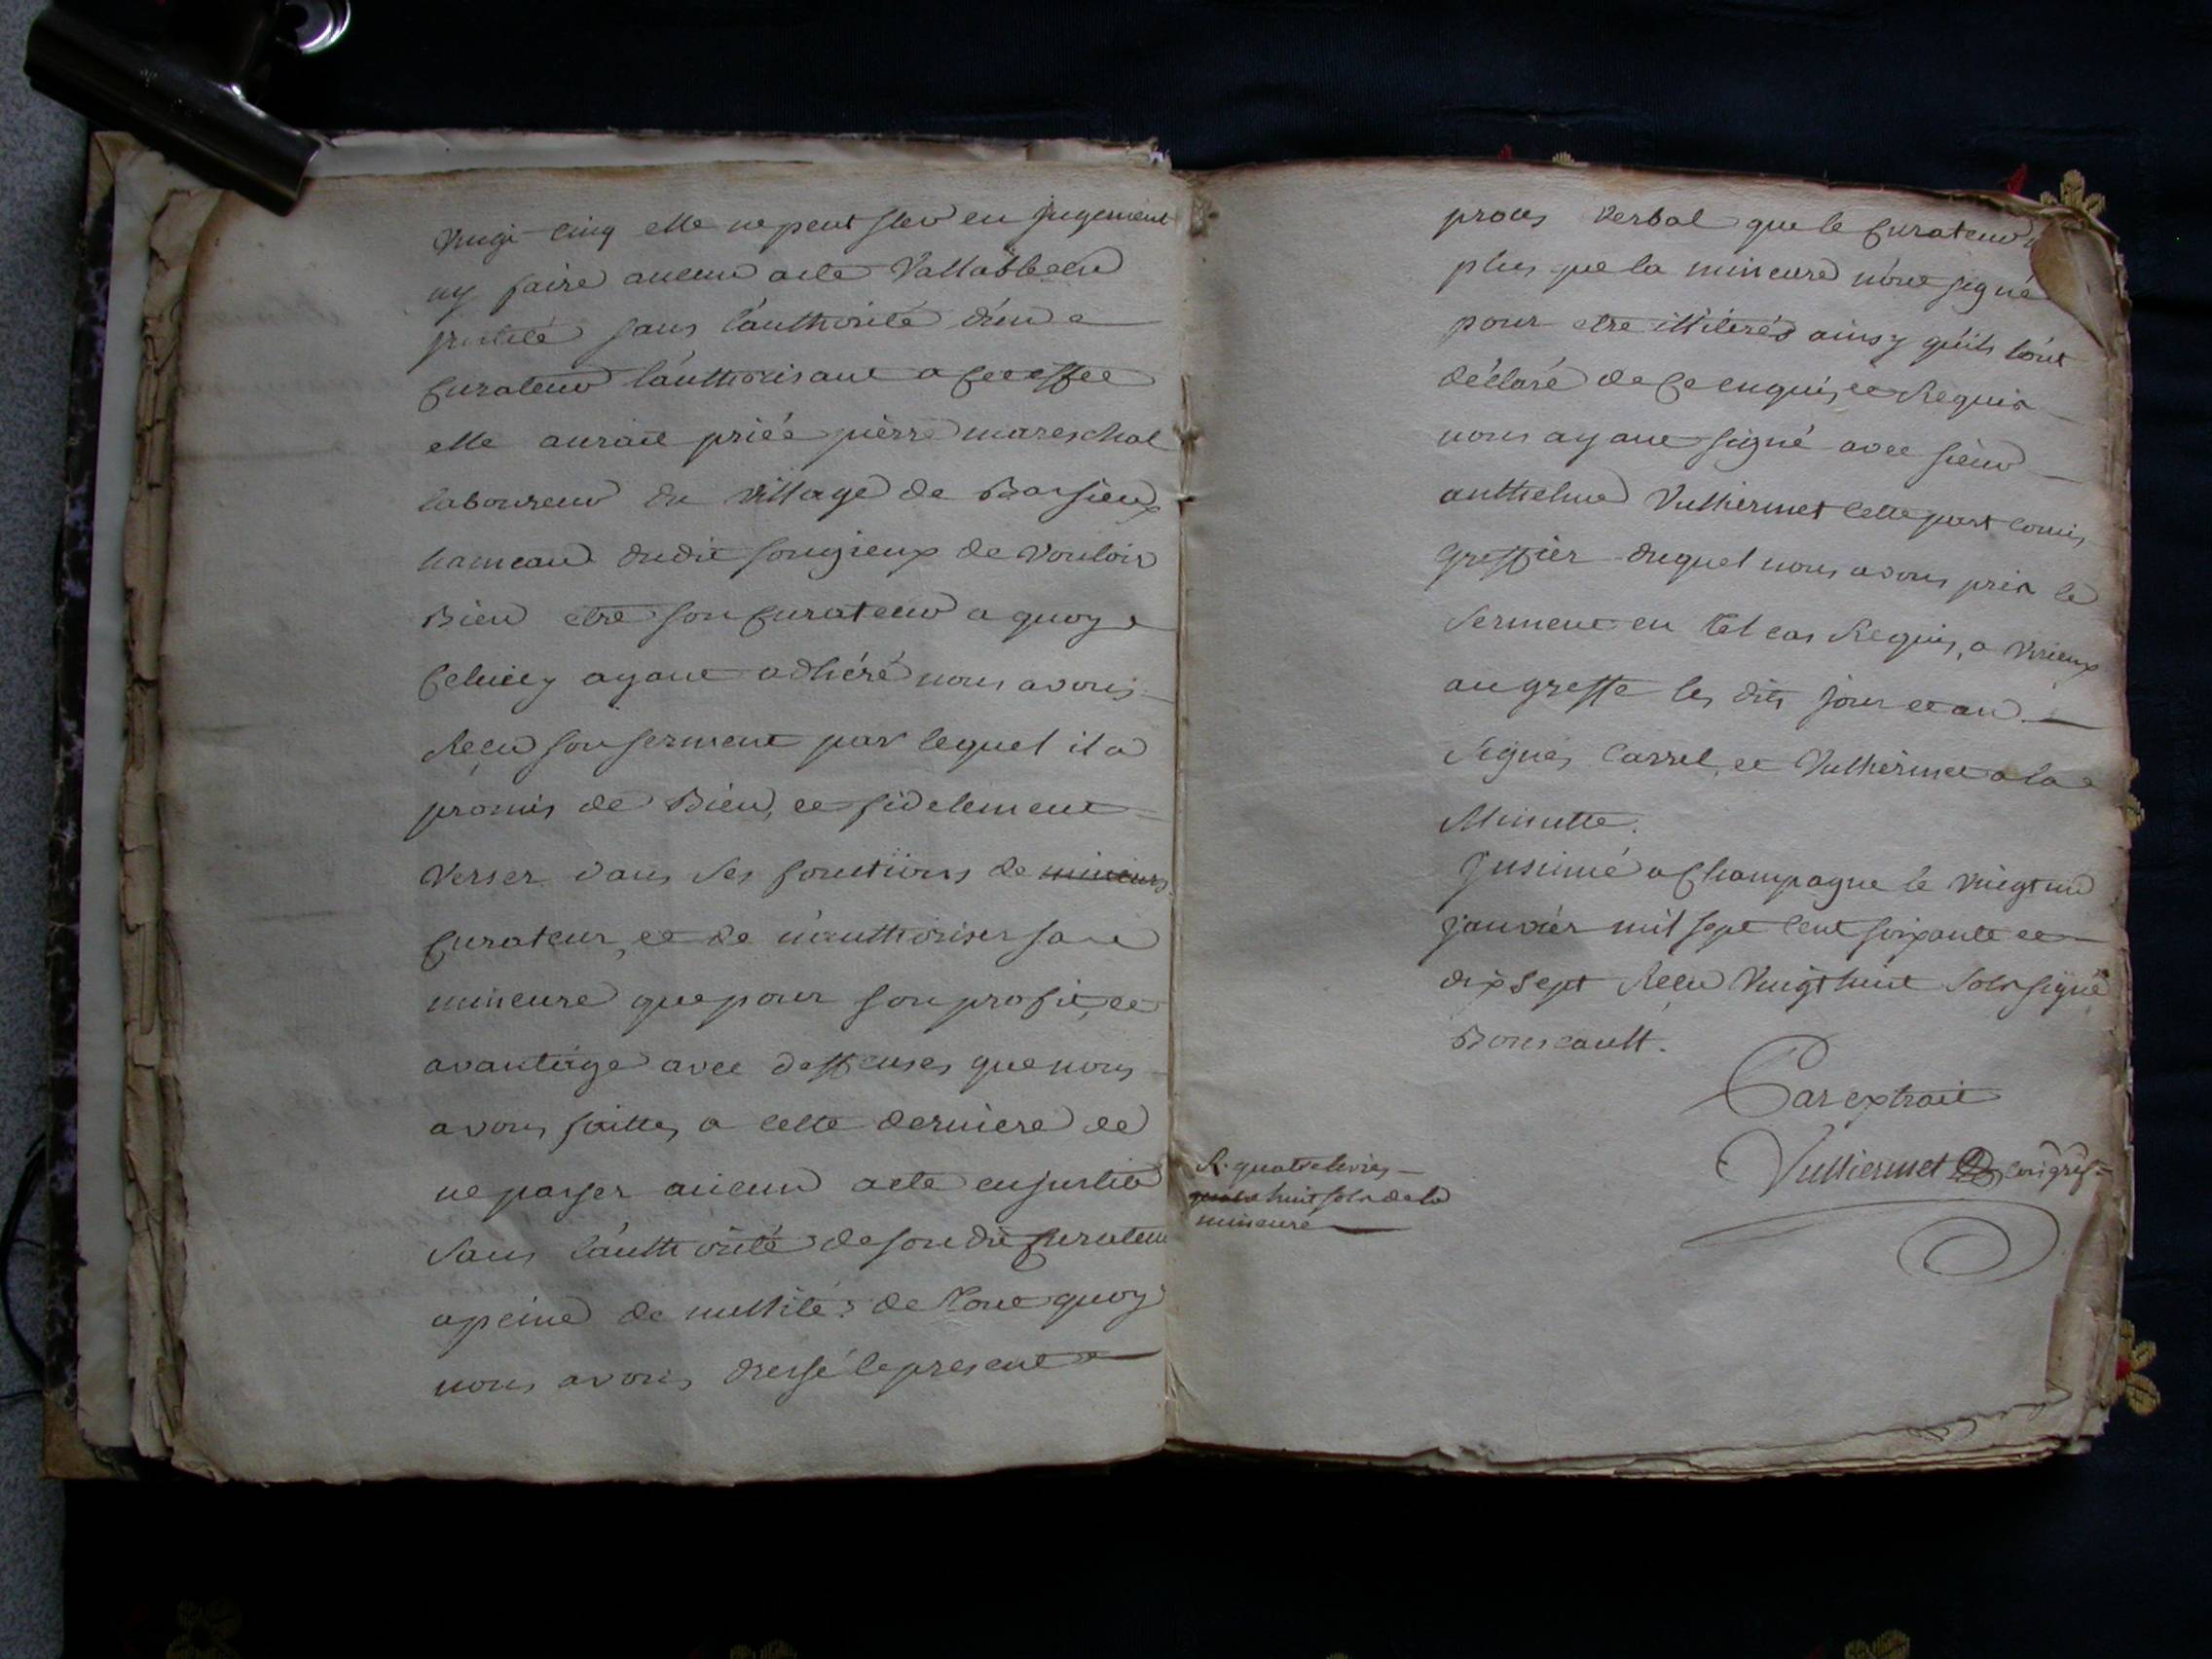 vingt cinq elle ne peut ster en jugement
ny faire aucun acte vallable en
justice sans l'authorité d'un
curateur l'authorisant a cet effet
elle auroit priée pierre mareschal
laboureur du village de Bassieux
hameau dudit songieux de vouloir
Bien etre son curateur a quoy
celuicy ayant adhéré nous avons
Recu son serment par lequel il a
promis de Bien, et fidelement
verser dans ses fonctions de mineurs
curateur, et de n'authoriser sa
mineure que pour son profit, et
avantage avec deffenses que nous
avons faittes a cette derniere de
ne passer aucun acte en justice
sans l'authorité de son dit curateur
a peine de nullité : de tout quoy
nous avons dressé le present
proces verbal que le curateur
plus que la mineure n'ont signé
pour etre illiterés ainsy qu'ils l'ont
déclaré de ce enquis, et Requis
nous ayant signé avec sieur
anthelme Vulliermet cette part comis
greffier duquel nous avons pris le
serment en tel cas Requis, a virieux
au greffe les dits jour et an.
Signés Carrel, et Vulliermet a la
Minutte.
Insinué a Champagne le vingt un
janvier mil sept cent soixante et
dix sept Recu vingt huit sols signé
Bouscault.
Par extrait
Vulliermet com gref
R. quatre livres
huit sols de la
mineure